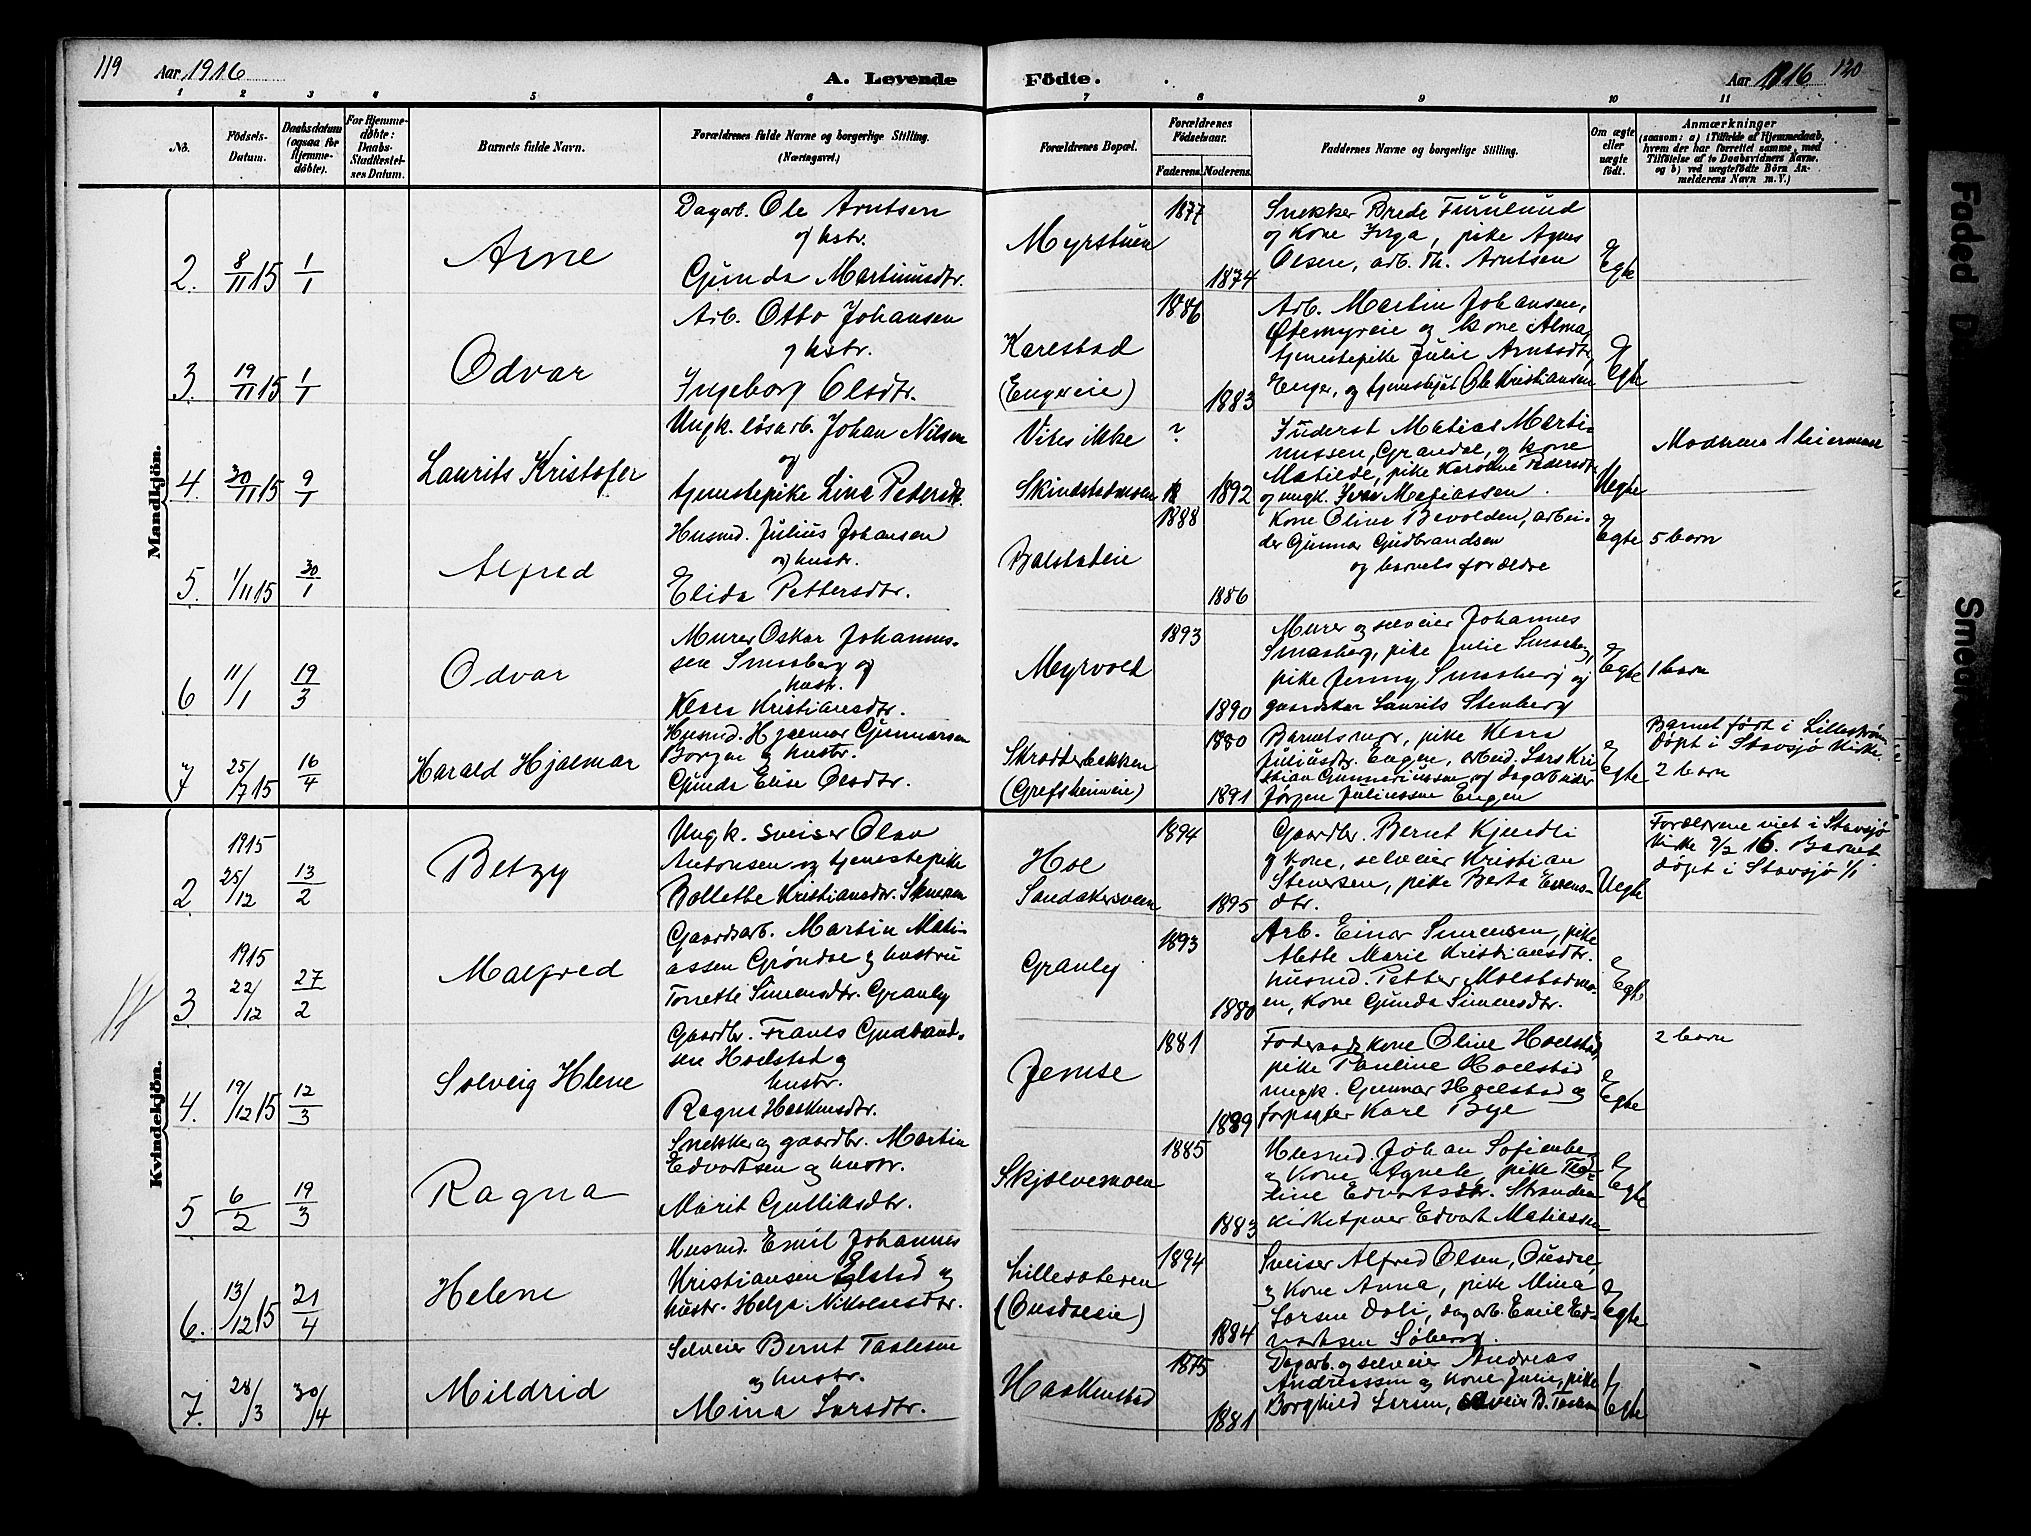 119 Aar 1916 A. Levende Födte. Aar 1916 120
1 2 3 4 5 6 7 8 9 10 11
No. Födsels-Datum. Daabsdatum (ogsaa for Hjemme-døbte). For Hjemme-døbte: Daabs-Stadfæstel-ses Datum. Barnets fulde Navn. Forældrenes fulde Navne og borgerlige Stilling. (Næringsvei.) Forældrenes Bopæl. Forældrenes Födselsaar. Faderens. Moderens. Faddernes Navne og borgerlige Stilling. Om ægte eller uægte födt. Anmærkninger (saasom: a) i Tilfælde af Hjemmedaab, hvem der har forrettet samme, med Tilföielse af to Daabsvidners Navne, og b) ved uægtefödte Börn An-melderens Navn m. V.)
Mandkjön.
2. 8/11 15 1/1 Arne
Dagarb. Ole Arntsen
og hstr.
Gunda Martinusdtr.
Myrstuen 1877 1874
Snekker Brede Furulund
og kone Inga, pike Agnes
Olsen, arb. Th. Arntsen
Egte
3. 19/11 15 1/1 Odvar
Arb. Otto Johansen
og hstr.
Ingeborg Olsdtr.
Karestad
(Engereie)
1886 1883
Arb. Martin Johansen,
Østemyreie og kone Alma,
tjenestepike Julie Arntsdtr.
Enger, og tjenestgut Ole Kristiansen
Egte
4. 30/11 15 9/1 Laurits Kristofer
Ungk. løsarb. Johan Nilsen
og
tjenestepike Lina Pedersdtr.
Vites ikke
Skindstadmoen
? 1892
Inderst Matias Marti-
nussen, Grandal, og kone
Matilde, pike Karoline Pedersdtr.
og ungk. Iver Matiassen
Uegte
Modrens 1 leiermaal
5. 1/11 15 30/1 Alfred
Husmd. Julius Johansen
og hustr.
Elida Pettersdtr.
Balstadeie
1888 1886
Kone Oline Bevolden, arbei-
der Gunnar Gudbrandsen
og barnets forældre
Egte 5 barn
6 11/1 19/3 Odvar
Murer Oskar Johannes-
sen Smesberg og
hustr.
Klara Kristiansdtr.
Myrvold 1893 1890
Murer og selveier Johannes
Smasberg, pike Julie Smesberg,
pike Jenny Smasberg og
gaardskar Laurits Stenberg
Egte 1 barn
7 25/17 15 16/4 Harald Hjalmar
Husmd. Hjalmar Gunnarsen
Borgen og hustr.
Gunda Elise Olsdtr.
Skrædderbakken
(Grefsheimeie)
1880 1891
Barnets mor, pike Klara
Juliusdtr. Engen, arbeid. Lars Kri
stian Gunneriussen og dagarbeider
Jørgen Juliussen Engen
Egte
Barnet født i Lillestrøm
døpt i Stavsjø kirke.
2 barn
Kvindekjön.
2 1915 25/12 13/2 Betzy
Ungk. sveiser Olav
Antonsen og tjenestepike
Bollette Kristiansdtr.
Hol
Sandakersveen
1894 1895
Gaardbr. Bernt Kjendli
og kone, selveier Kristian
Stenersen, pike Berta Evens-
dtr.
Uegte
Forældrene viet i Stavsjø
kirke 9/2 16. Barnet
døpt i Stavsjø
3 1915 22/12 27/2 Malfred
Gaardsarb. Martin Mati-
assen Grøndal og hustru
Tonette Simensdtr. Granly
Granly 1893 1880
Arb. Einar Simensen, pike
Alette Marie Kristiansdtr.
husmd. Petter Molstadmo-
en, kone Gunda Simensdtr.
Egte
4. 19/12 15 12/3 Solveig Helene
Gaardbr. Frants Gudbrand-
sen Hoelstad og
hustr.
Ragna Haakensdtr.
Jemse 1881 1889
Føderaadskone Oline Hoelstad,
pike Pauline Hoelstad
ungk. Gunnar Hoelstad og
forpagter Karl Bye
Egte 2 barn
5 6/2 19/3 Ragna
Snekker og gaardbr. Martin
Edvartsen og hustr.
Marit Gulliksdtr.
Skjølvemoen 1885 1883
Husmd. Johan Sofienberg
og kone Agnete, pike
Edvartsdtr. Stranden
kirketjener Edvart Matiassen
Egte
6. 13/12 15 21/4 Helene
Husmd. Emil Johannes
Kristiansen Elstad og
hustr. Helga Nikolaisdtr.
Lillesæteren
(Ousdaleie)
1894 1884
Sveiser Alfred Olsen, Ousdal,
og kone Anna, pike Mina
Larsen Doli, dagarb. Emil Ed-
vartsen Søberg.
Egte
7. 28/3 30/4 Mildrid
Selveier Bernt Taalesen
og hustr.
Mina Larsdtr.
Haakenstad 1875 1881
Dagarb. og selveier Andreas
Andreassen og kone Julie, pike
Borghild Larsen, selveier B. Taalesen
Egte
Faded
Smear